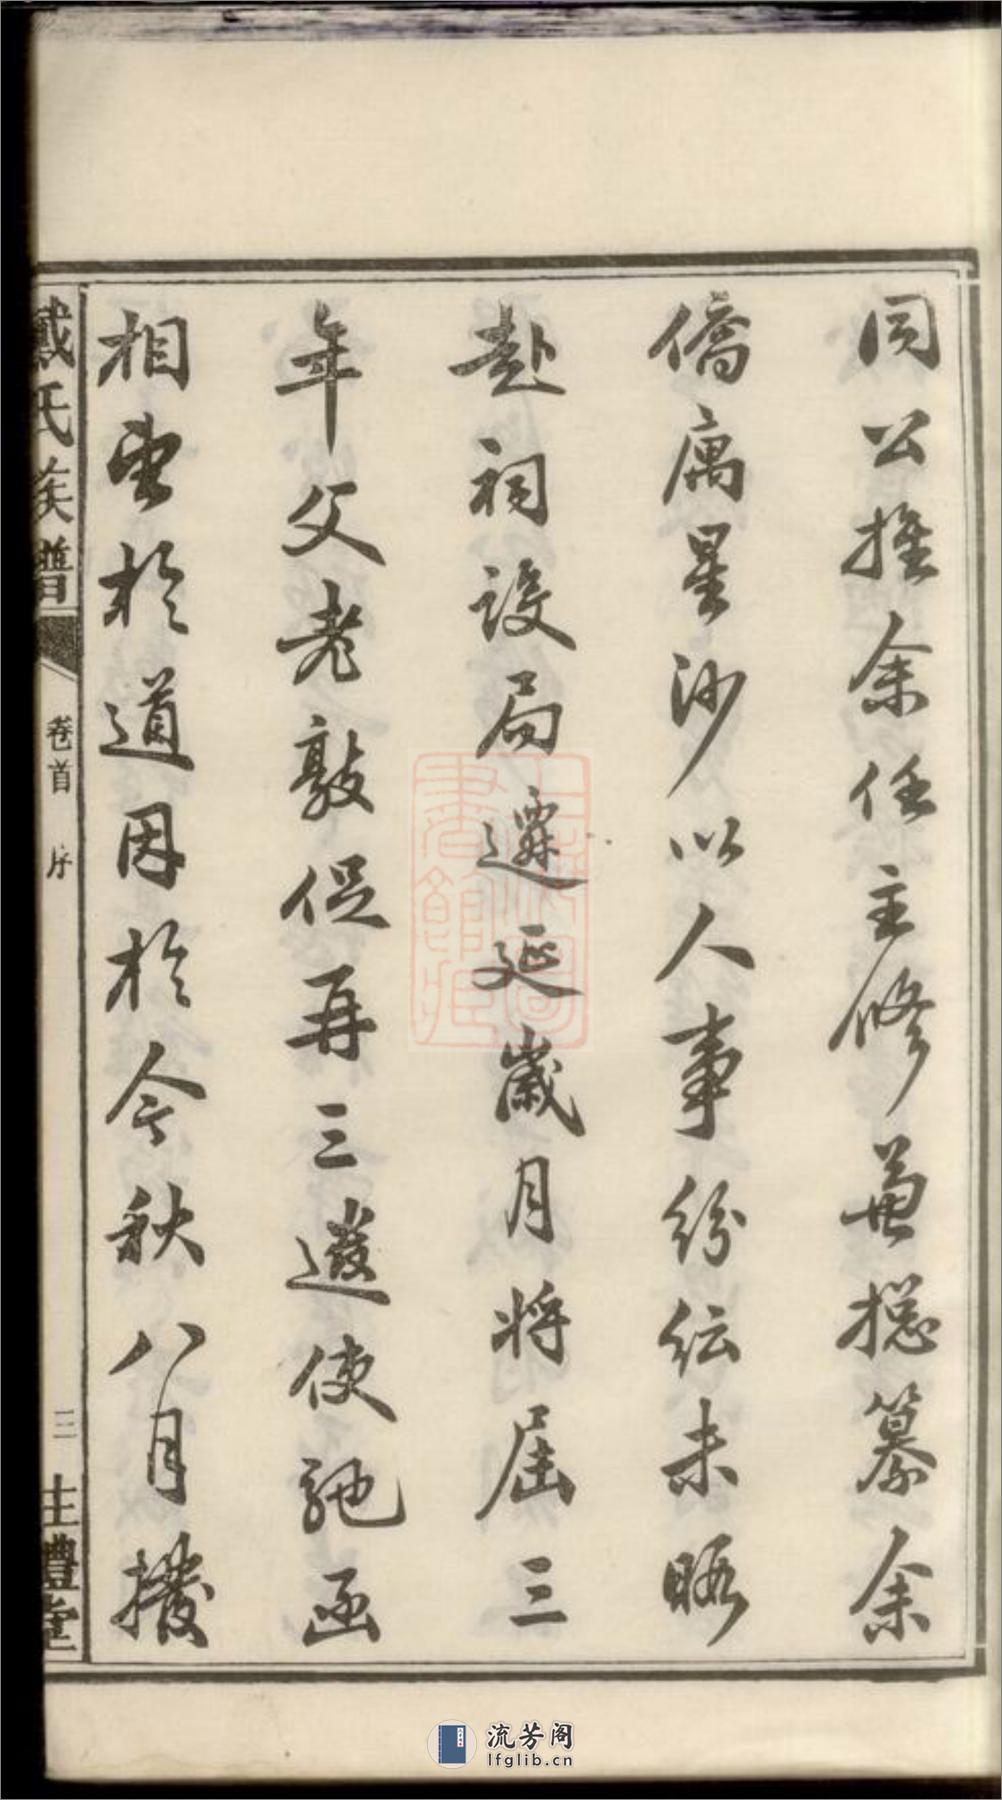 同公推余任主修兼總纂余
僑寓星沙以人事紛紜未暇
赴祠設局遷延歲月將屆三
年父老敦促再三遴使馳函
相望於道因於今秋八月撥
戴氏族譜
卷首 序
三
注禮堂
流芳阁
lfglib.cn